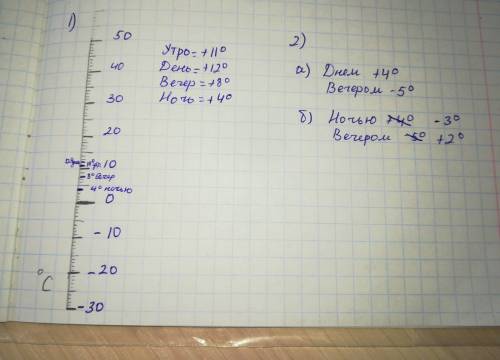 1)
50
40
30
20
10
11° утро
8° вечер
4° ночью
0
-10
-20
-30
°C
Утро = +11°
День = +12°
Вечер = +8°
Ночь = +4°
2)
а) Днем +4°
Вечером -5°
б) Ночью +4° -3°
Вечером -5° +2°